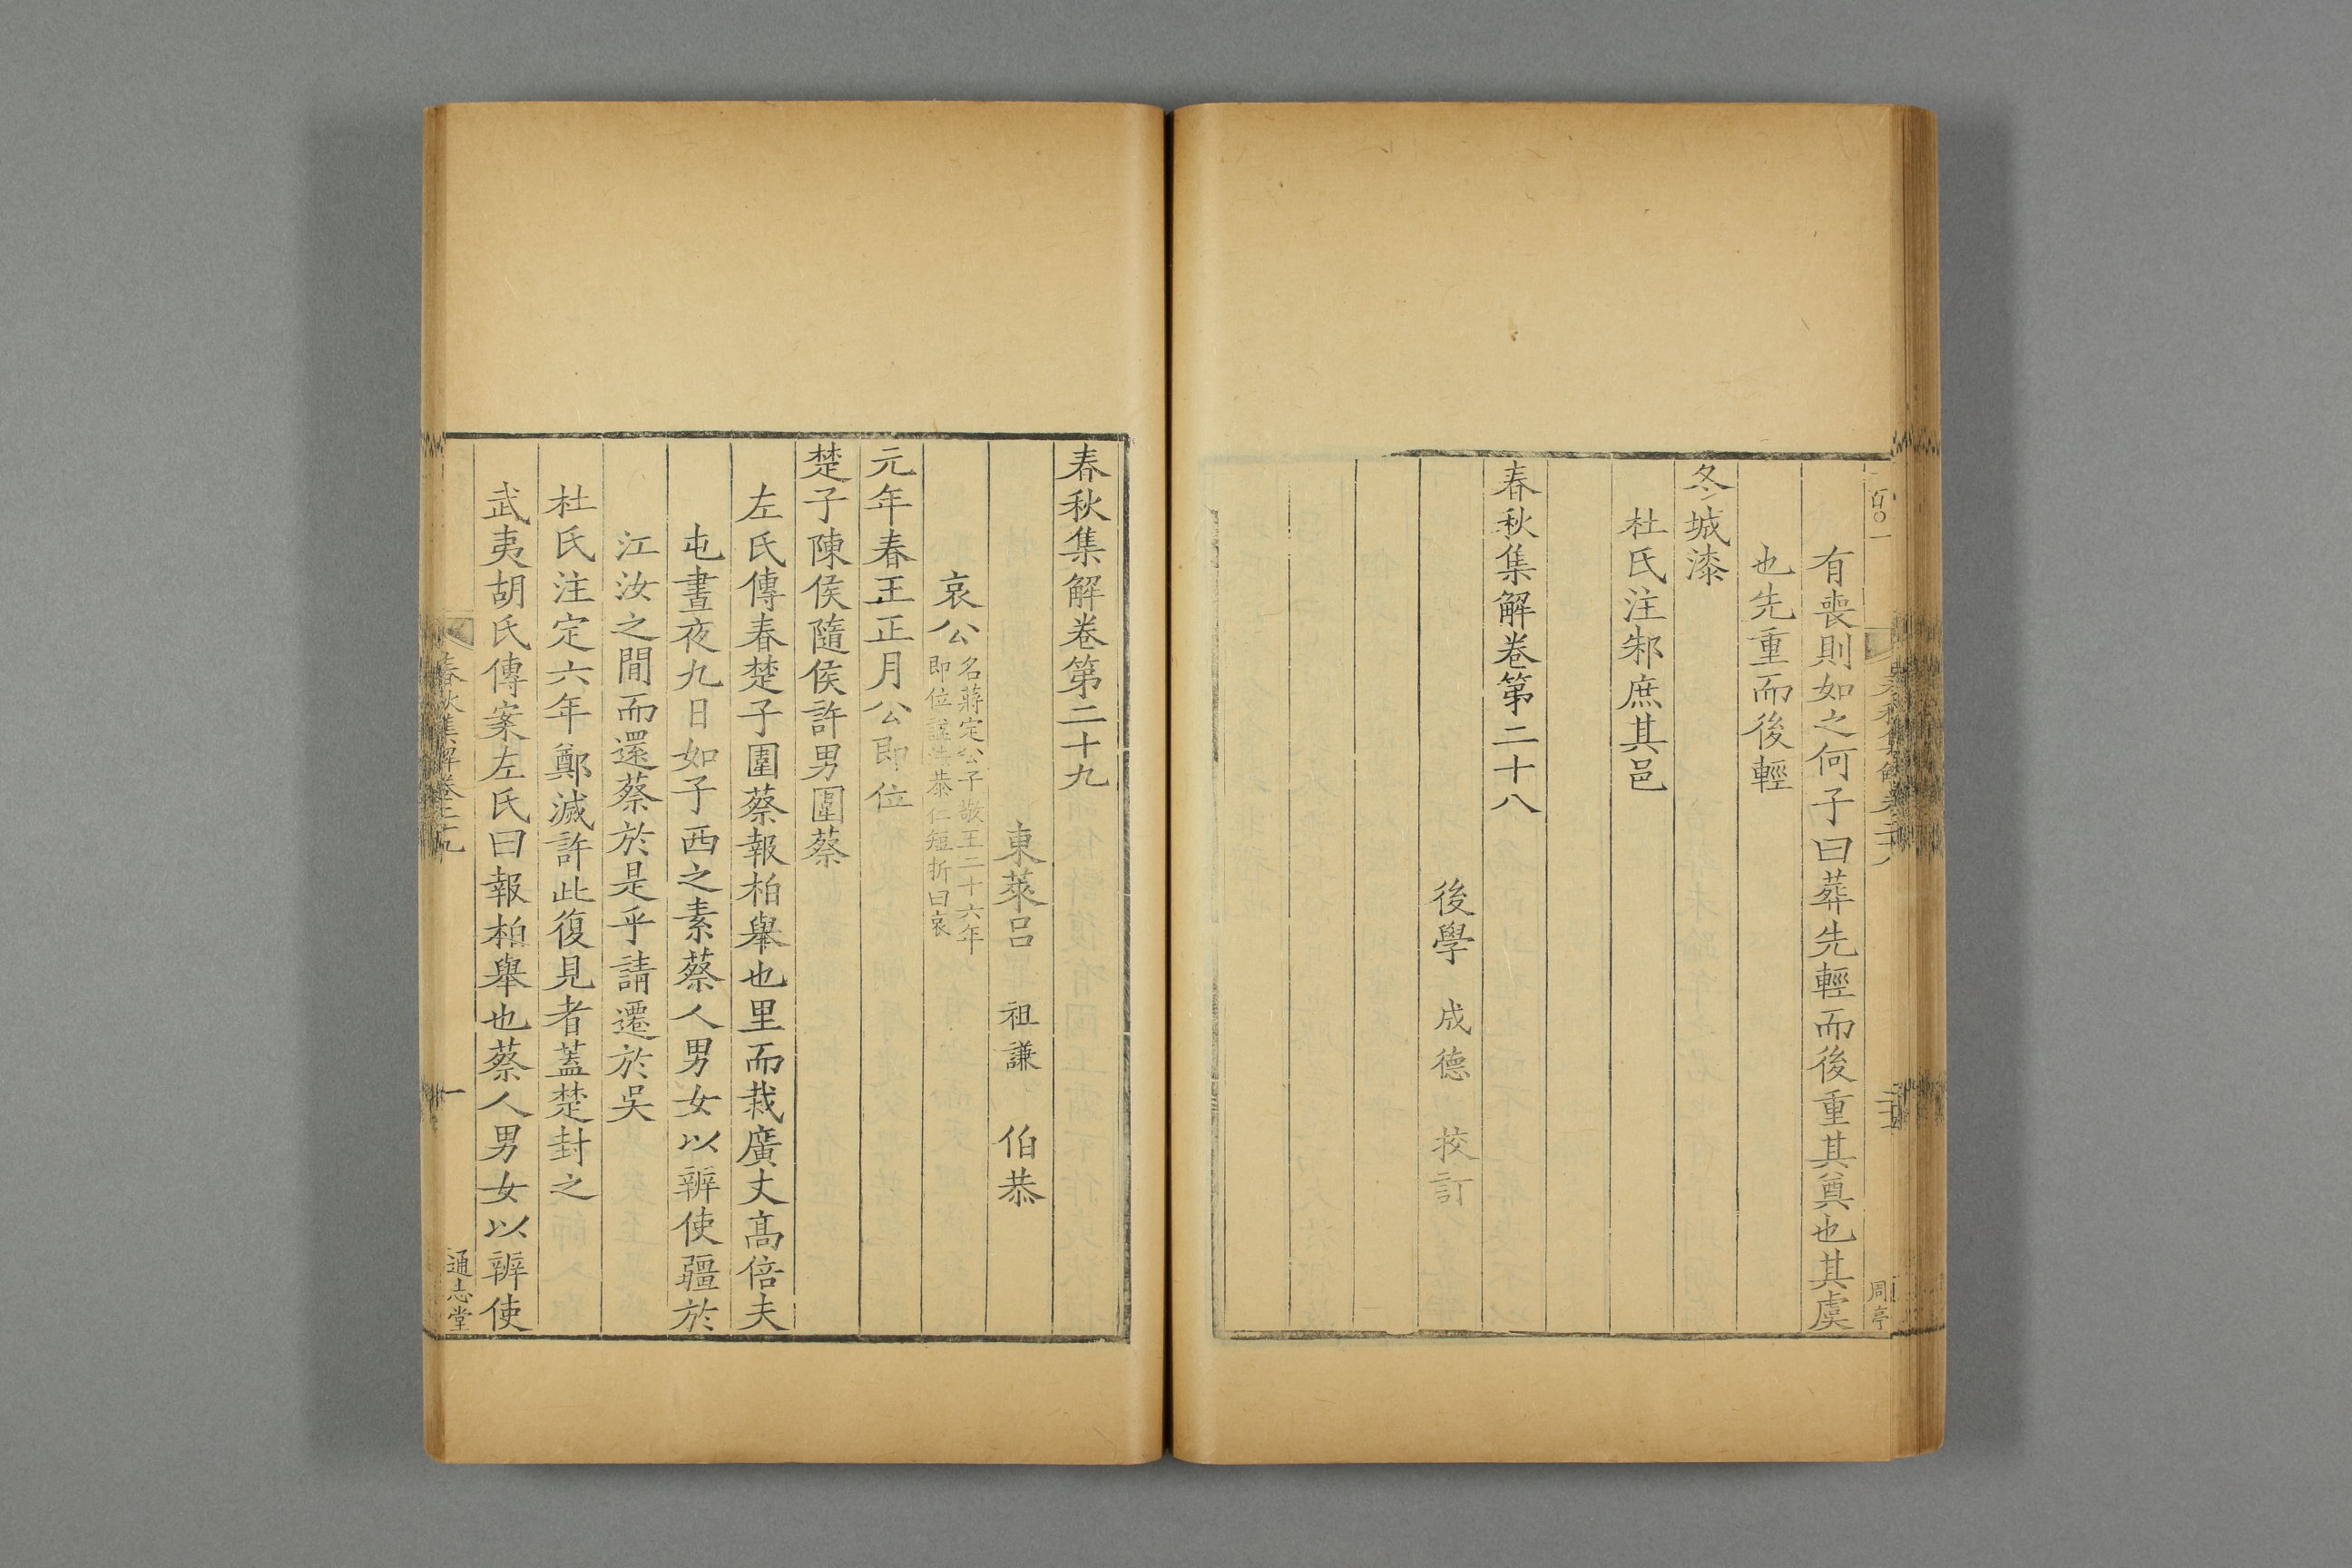 有喪則如之何子曰葬先輕而後重其奠也其虞
也先重而後輕
冬城漆
杜氏注邾庶其邑
春秋集解卷第二十八
後學 成德 挍訂
周亭
春秋集解卷第二十九
東萊呂 祖謙 伯恭
哀公
名蔣定公子敬王二十六年
即位諡法恭仁短折曰哀
元年春王正月公即位
楚子陳侯隨侯許男圍蔡
左氏傳春楚子圍蔡報柏舉也里而栽廣丈髙倍夫
屯晝夜九日如子西之素蔡人男女以辨使疆於
江汝之閒而還蔡於是乎請遷於吳
杜氏注定六年鄭滅許此復見者蓋楚封之
武夷胡氏傳案左氏曰報柏舉也蔡人男女以辨使
春秋集解卷二十九
一
通志堂